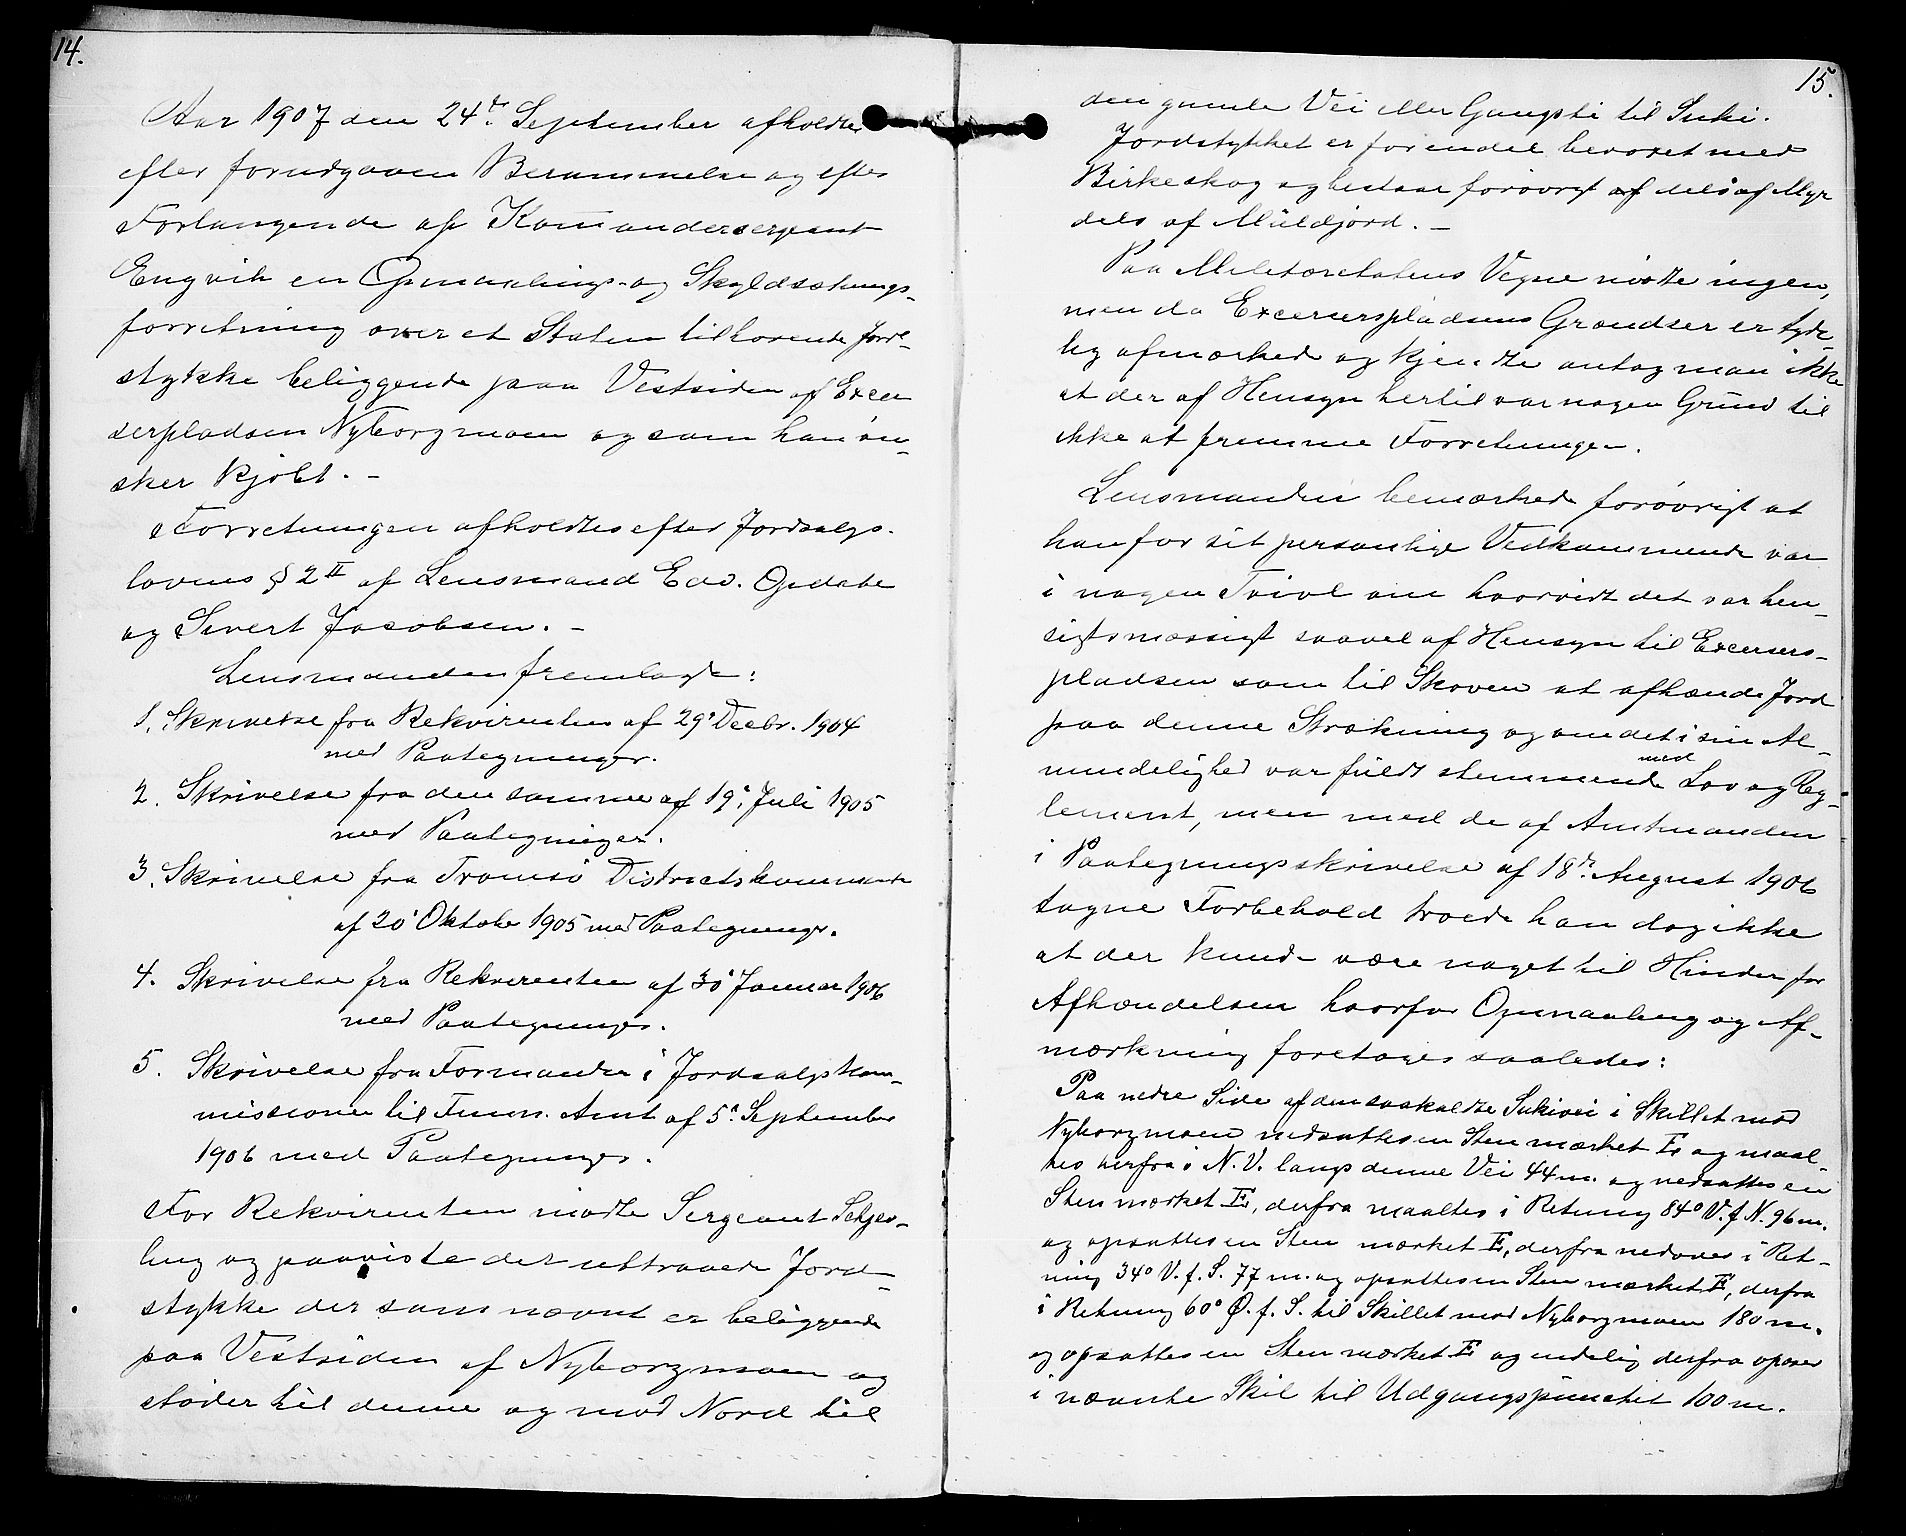 14.
Aar 1907 den 24de September afholdtes
efter forudgaaen Berammelse og efter
Forlangende af Komandersergeant
Engvik en Opmaalings- og Skyldsætnings-
forretning over et Staten tilhorende Jord-
stykke beliggende paa Vestsiden af Excer
serpladsen Nyborgmoen og som han øn-
sker kjøbt. -
Forretningen afholdtes efter Jordsalgs-
lovens § 2 II af Lensmand Edv. Opdahl
og Sivert Jacobsen. -
Lensmanden fremlagde:
1. Skrivelse fra Rekvirenten af 29' Decbr. 1904
med Paategninger.
2. Skrivelse fra den samme af 19' Juli 1905
med Paategninger.
3. Skrivelse fra Tromsø Districtskommando
af 20' Oktober 1905 med Paategninger.
4. Skrivelse fra Rekvirenten af 30' Januar 1906
med Paategninger.
5. Skrivelse fra Formanden i Jordsalgskom-
missionen til Finm. Amt af 5' September
1906 med Paategninger.
For Rekvirenten mødte Sergeant Schjer-
ling og paaviste det attraaede Jord-
stykke der som nævnt er beliggende
paa Vestsiden af Nyborgmoen og
støder til denne og mod Nord til
15.
den gamle Vei eller Gangsti til Suki.
Jordstykket er for en del bevoxet med
Birkeskog og bestaar forøvrigt af dels af Myr
dels af Muldjord. -
Paa Militæretatens Vegne mødte ingen,
men da Excerserpladsens Grændser er tyde
lig afmærkede og kjendte antog man ikke
at der af Hensyn hertil var nogen Grund til
ikke at fremme Forretningen.
Lensmanden bemærkede forøvrigt at
han for sit personlige Vedkommende var
i nogen Tvivl om hvorvidt det var hen-
sigtsmæssigt saavel af Hensyn til Excersers-
pladsen som til Skoven at afhænde Jord
paa denne Strækning og om det i sin Al-
mindelighed var fuldt stemmende med Lov og Reg-
lement, men med de af Amtmanden
i Paategningsskrivelse af 18de August 1906
tagne Forbehold troede han dog ikke
at der kunde være noget til Hinder for
Afhændelsen hvorfor Opmaaling og Af-
mærkning foretages saaledes:
Paa nedre Side af den saakaldte Sukivei i Skillet mod
Nyborgmoen nedsattes en Sten mærket E og maal-
tes herfra i N. V. langs denne Vei 44 m. og nedsattes en
Sten mærket E, derfra maaltes i Retning 84° V. f. N. 96 m.
og opsattes en Sten mærket E, derfra nedover i Ret-
ning 34° V. f. S. 77 m. og opsattes en Sten mærket E, derfra
i Retning 60° Ø. f. S. til Skillet mod Nyborgmoen 180 m.
og opsattes en Sten mærket E og endelig derfra opover
i nævnte Skil til Udgangspunctet 100 m.